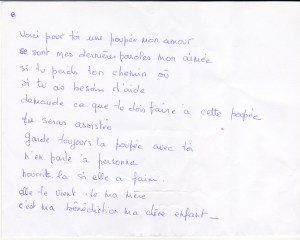 Voici pour toi une poupée mon amour
ce sont mes dernières paroles mon aimée
si tu perds ton chemin où
si tu as besoin d'aide
demande ce que tu dois faire à cette papée
tu seras assistée
garde toujours la poupée avec toi
n'en parle à personne
nourrit la si elle a faim.
elle te vient de ma mère
c'est ma bénédiction ma chère enfant _